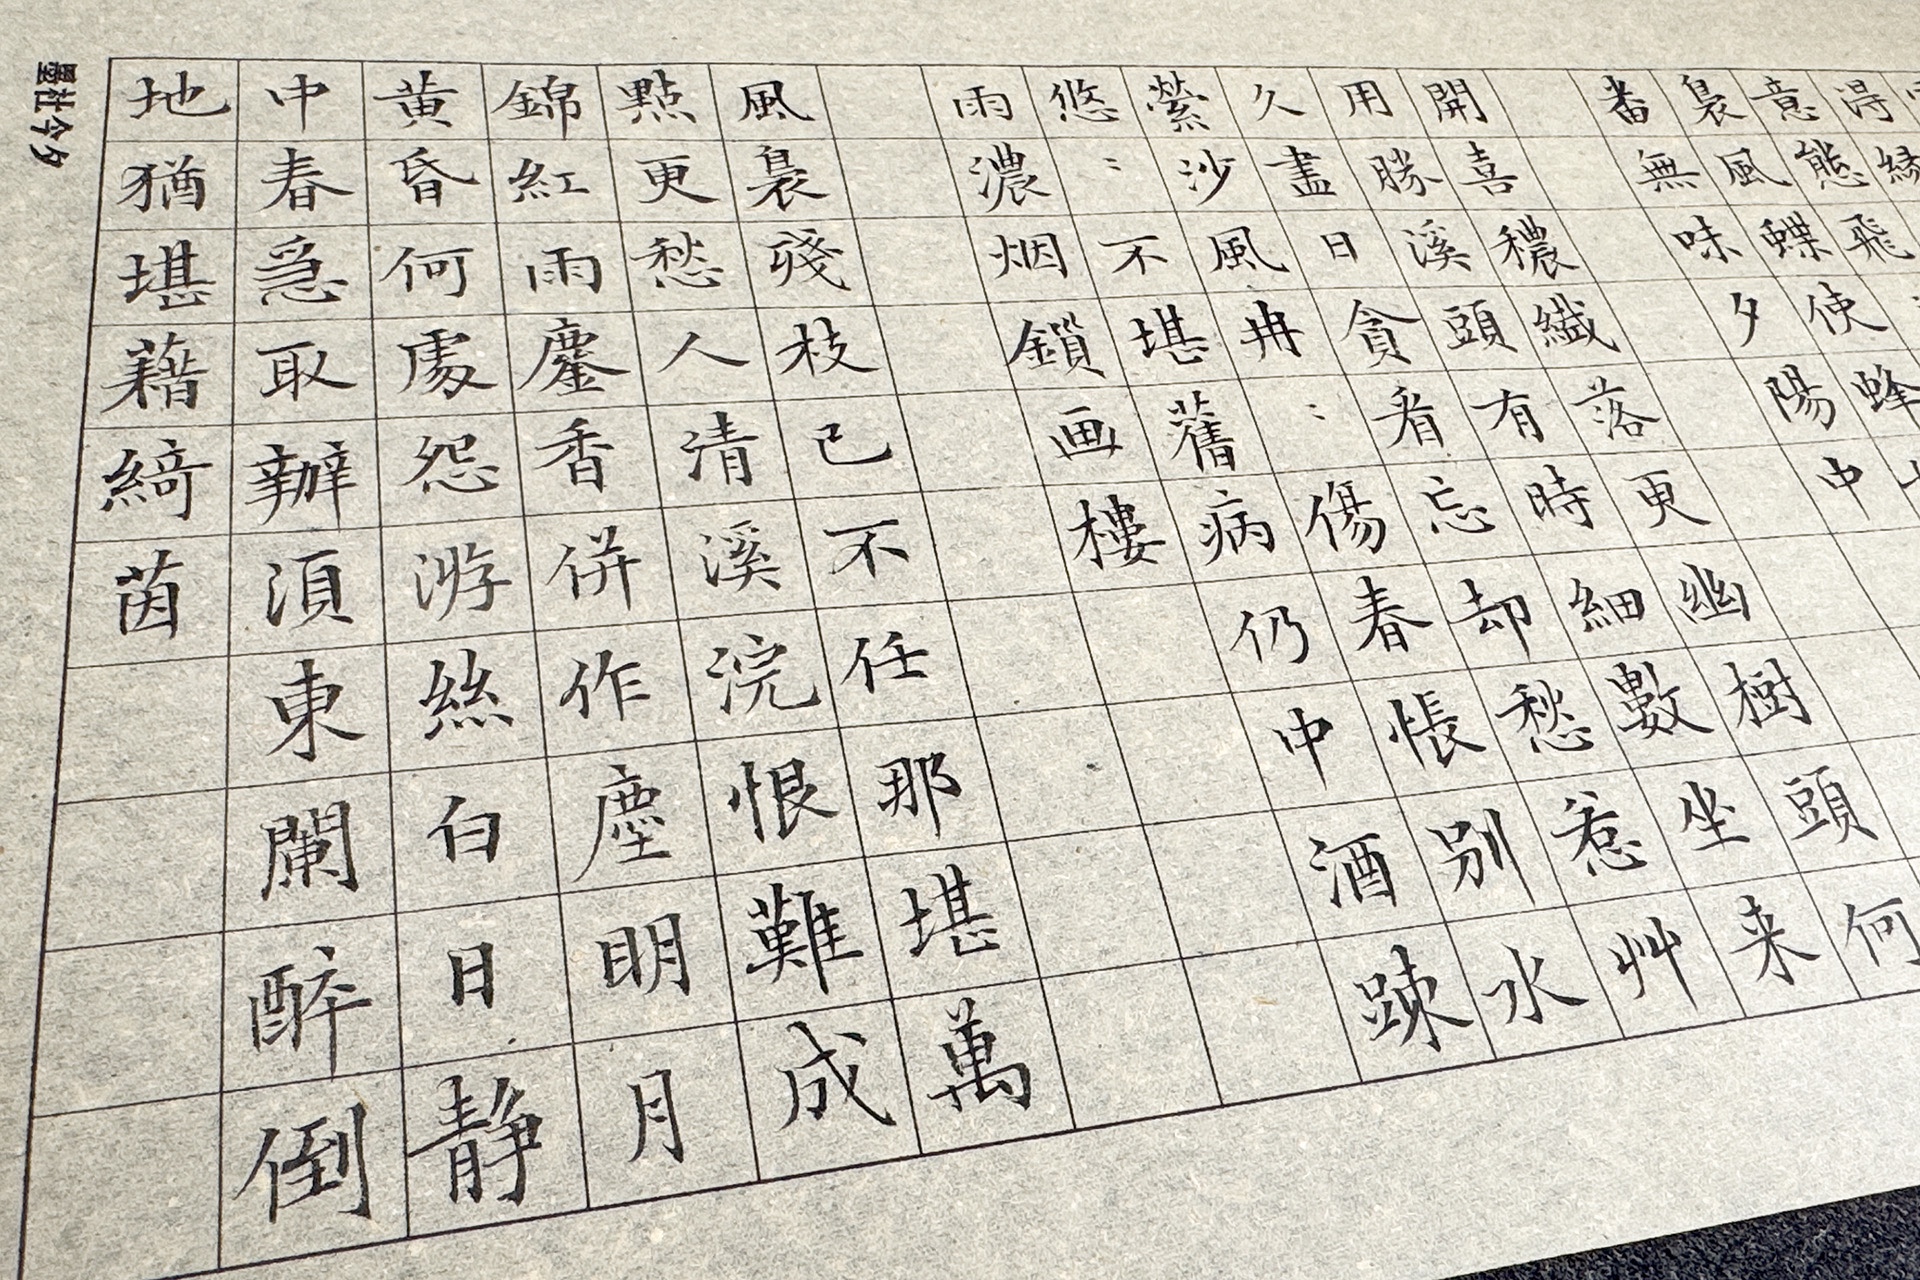 意態飛
裊風蝶使蜂
番無味夕陽中
開喜穠纖落更幽樹頭何
用勝溪頭有時細數坐来
久盡日貪看忘却愁惹艸
縈沙風冉：傷春悵别水
悠：不堪舊病仍中酒踈
雨濃烟鎖画樓
風裊殘枝已不任那堪萬
點更愁人清溪浣恨難成
錦紅雨鏖香併作塵明月
黄昏何處怨游絲白日靜
中春急取辦湏東闌醉倒
地猶堪藉綺茵